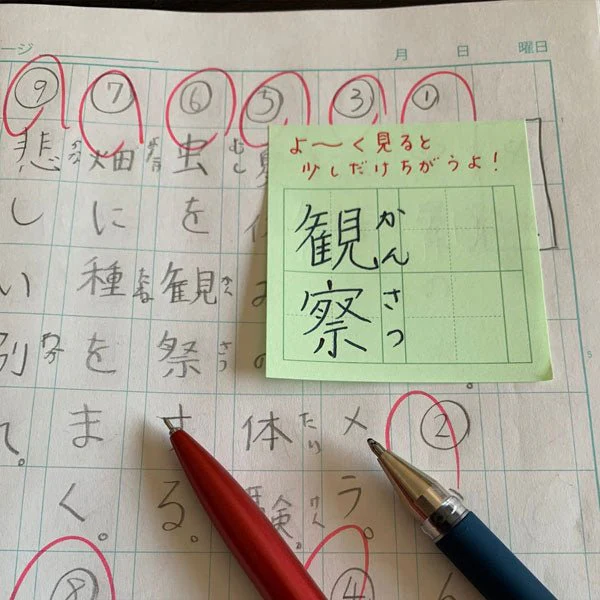 ージ
月 日 曜日
①
③
⑤
⑥
⑦
⑨
よ〜く見ると
少しだけちがうよ！
観察
かんさつ
②
メラ。
④
体験。
たいけん
虫を観祭する。
むし かん さつ
畑に種をまく。
たね
⑧
悲しい別
かな